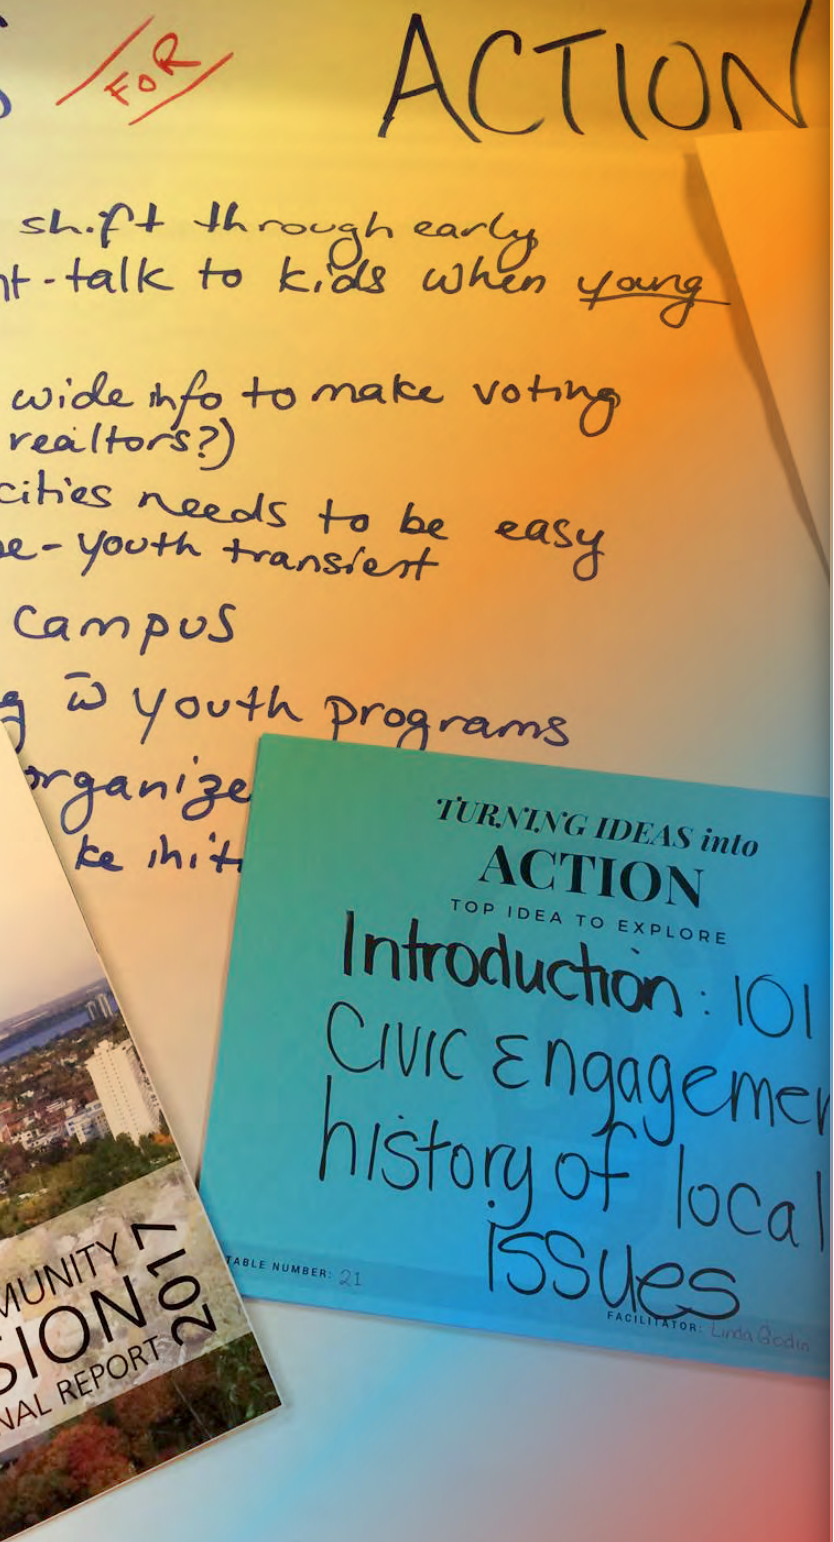 FOR
ACTION
shift through early
-talk to kids when young
wide info to make voting
realtors?)
cities needs to be easy
-youth transient
campus
w̄ youth programs
organize
TURNING IDEAS into
ACTION
TOP IDEA TO EXPLORE
Introduction: 101
Civic Engagemen
history of local
issues
TABLE NUMBER: 21
FACILITATOR: Linda Godin
MUNITY
SION
NAL REPORT
2017